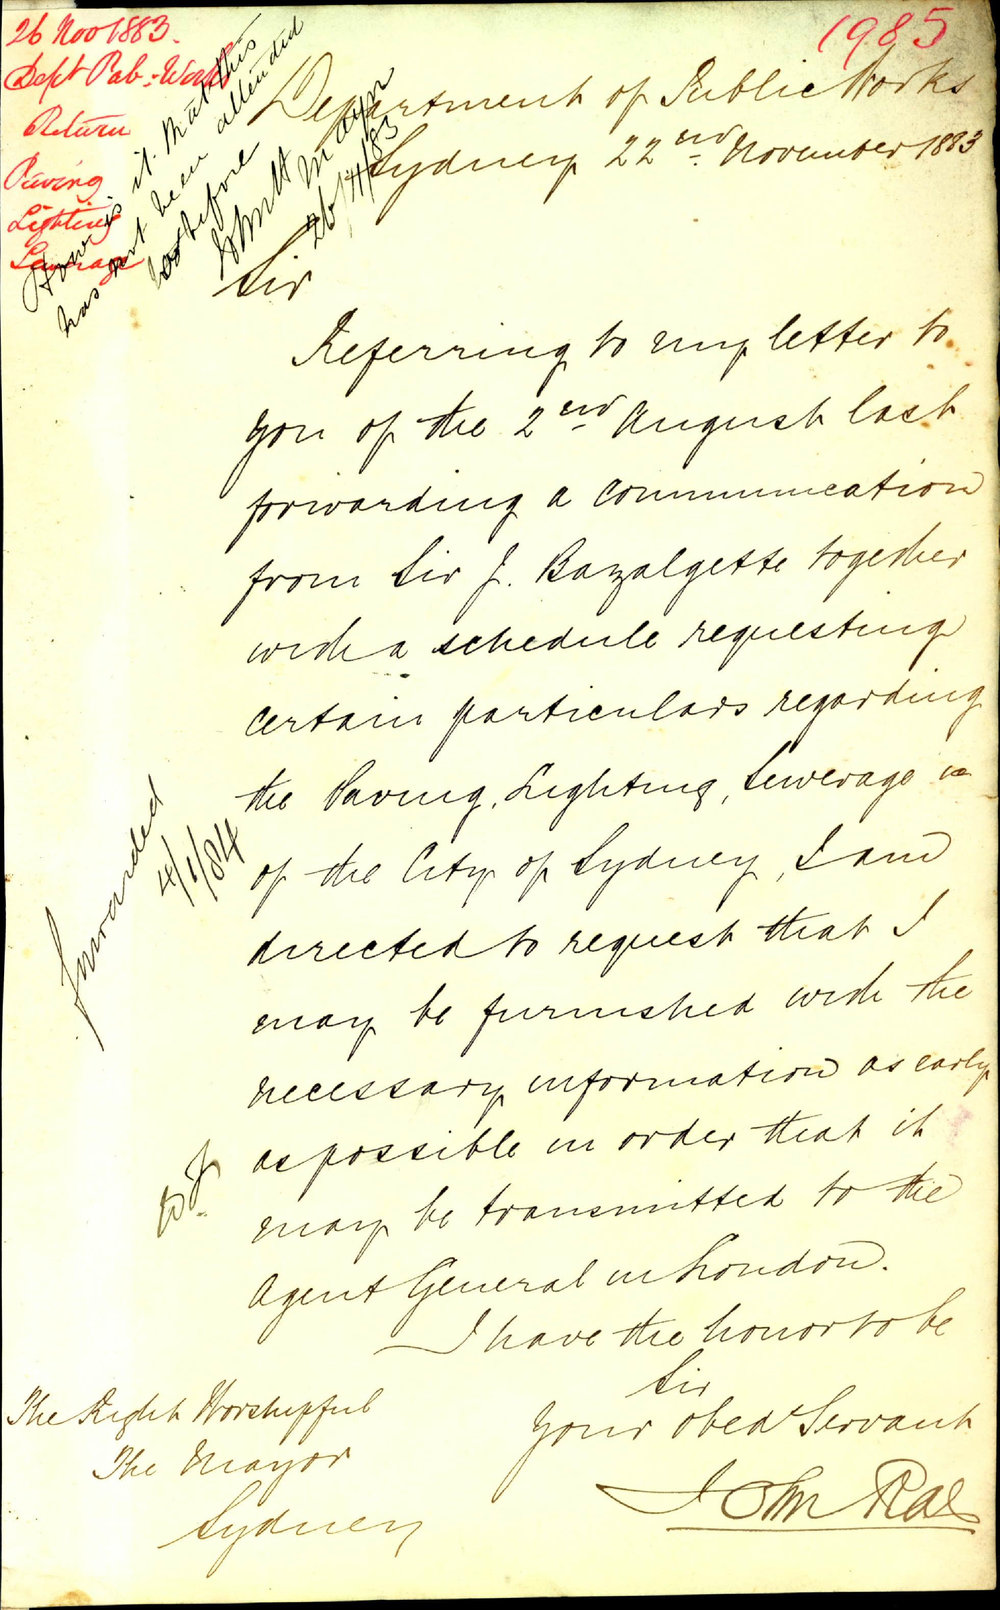 26 Nov 1883.
Dept Pub. Works
Return
Paving
Lighting
Sewerage
1985
How is it that this
has not been attended
to before
Mayor
26/11/83
Department of Public Works
Sydney 22nd November 1883
Sir
Referring to my letter to
you of the 2nd August last
forwarding a communication
from Sir J. Bazalgette together
with a schedule requesting
certain particulars regarding
the Paving, Lighting, Sewerage &c
of the City of Sydney, I am
directed to request that I
may be furnished with the
necessary information as early
as possible in order that it
may be transmitted to the
Agent General in London.
I have the honor to be
Sir
Your obed Servant
John Rae
The Right Worshipful
The Mayor
Sydney
forwarded
4/1/84